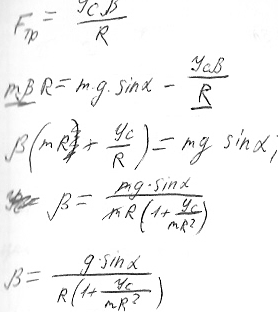 Fтр = YcB / R
mBR = m·g·sinα - YcB / R
β(mR + Yc / R) = mg sinα;
β = mg·sinα / mR(1 + Yc / mR²)
B = g·sinα / R(1 + Yc / mR²)